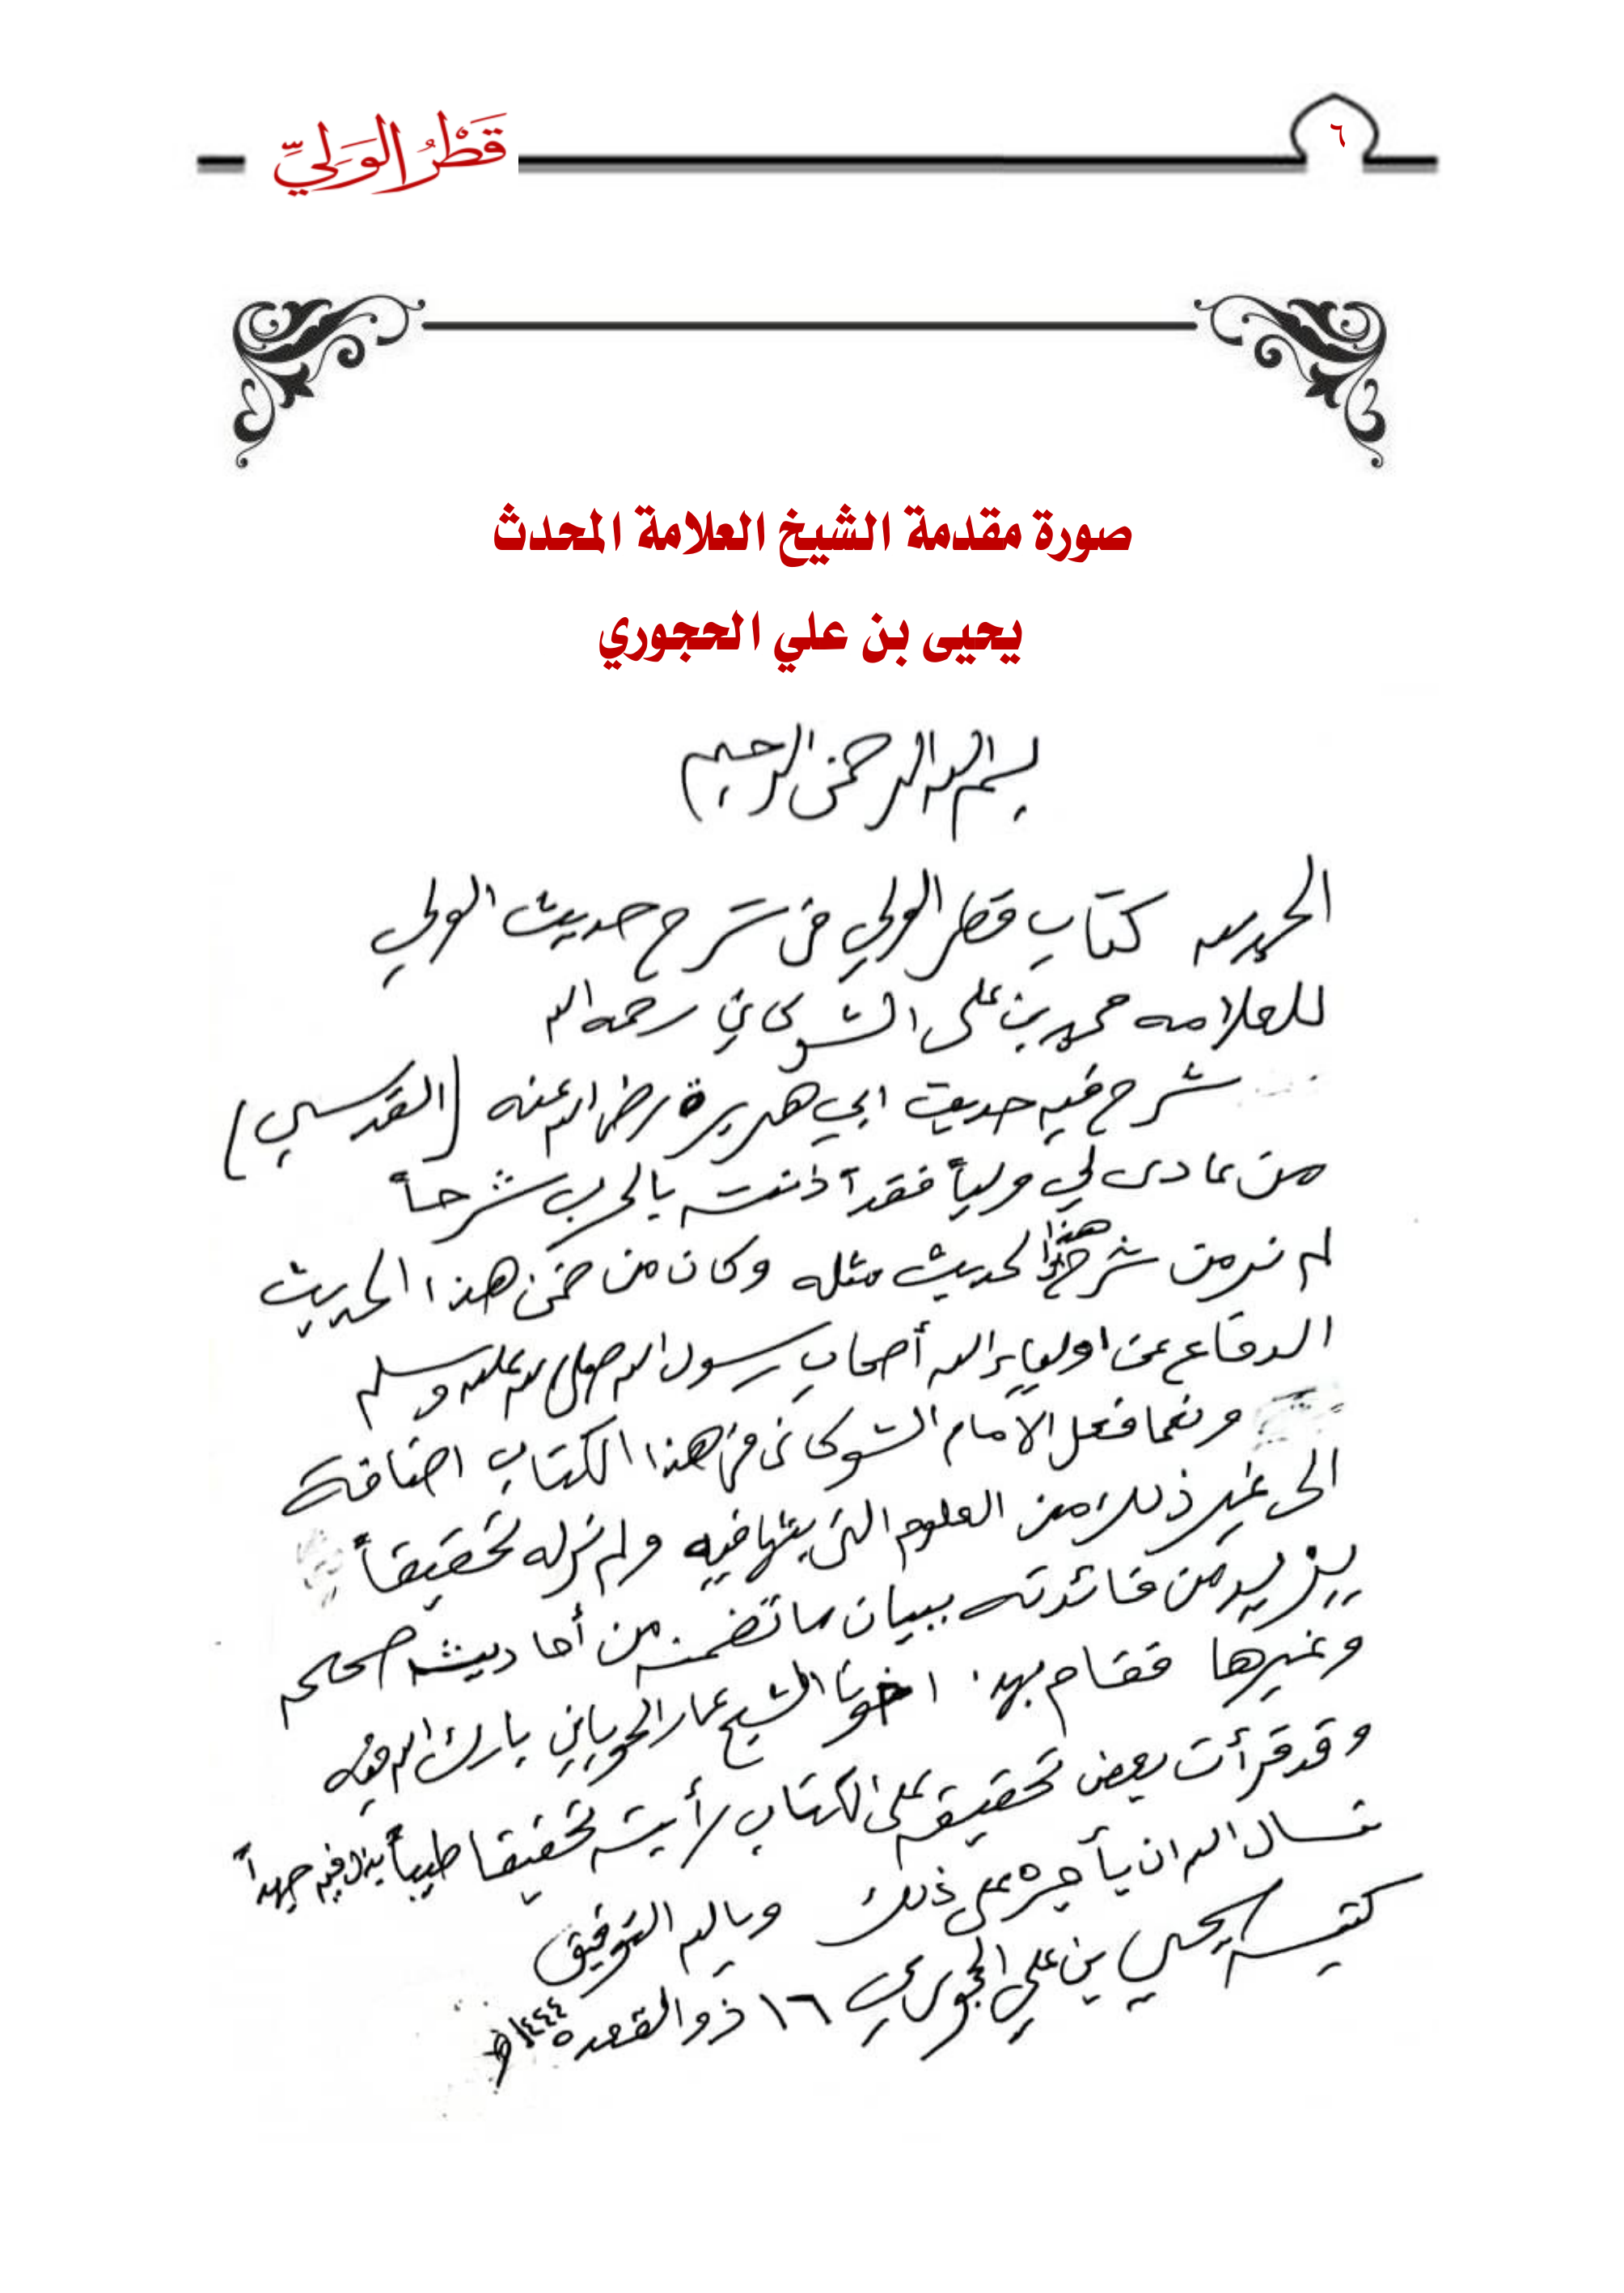 ٦
قَطْرُ الوَلِيِّ
صورة مقدمة الشيخ العلامة المحدث
يحيى بن علي الحجوري
بسم الله الرحمن الرحيم
الحمد لله كتاب قطر الولي في شرح حديث الولي
للعلامه محمد بن علي الشوكاني رحمه الله
شرح فيه حديث ابي هريرة رضي الله عنه (القدسي)
من عادى لي ولياً فقد آذنته بالحرب شرحاً
لم نر من شرح هذا الحديث مثله وكان من ضمن هذا الحديث
الدفاع عن اولياء الله أصحاب رسول الله صلى الله عليه وسلم
ونعما فعل الامام الشوكاني في هذا الكتاب اضافة
الى غير ذلك من العلوم التي بثها فيه ولم نر له تحقيقاً
يزيد من فائدته ببيان ما تضمنه من أحاديث صحيحه
وغيرها فقام بهذا اخونا الشيخ عمار الحوباني بارك الله فيه
وقد قرأت بعض تحقيقه على الكتاب رأيته تحقيقا طيباً بذل فيه جهداً
نسال الله ان يأجره على ذلك وبالله التوفيق
كتبه يحيى بن علي الحجوري ١٦ ذو القعده ١٤٤٤هـ